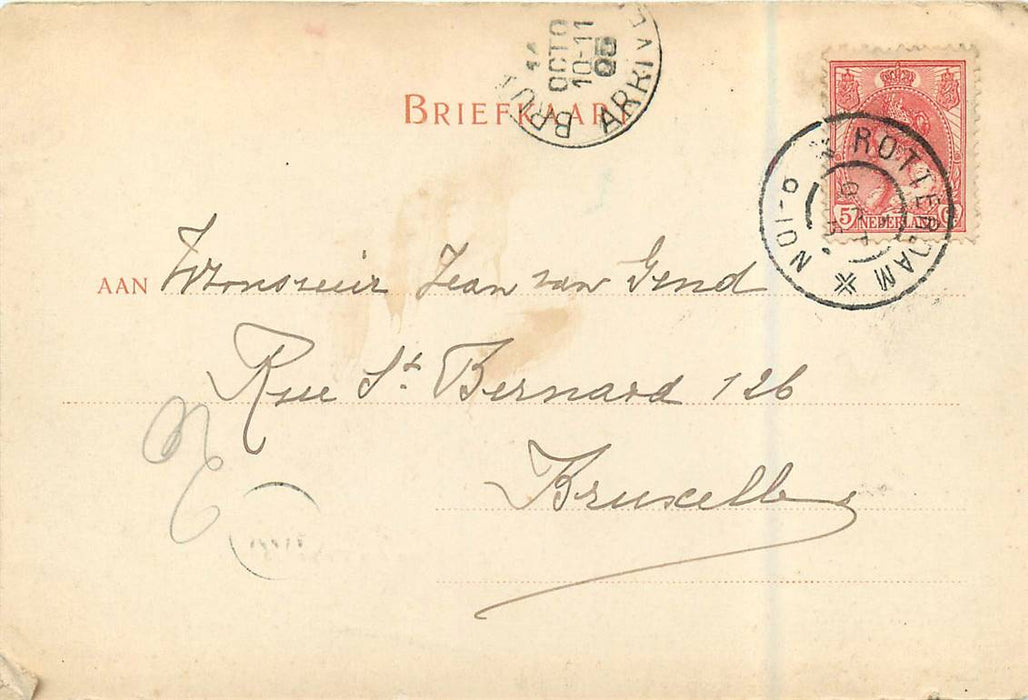 BRIEFKAART
14
OCTO
10-11
05
ARRIVÉE
5 NEDERLAND
ROTTERDAM
AAN Monsieur Jean van Gend
Rue St Bernard 126
Bruxelles